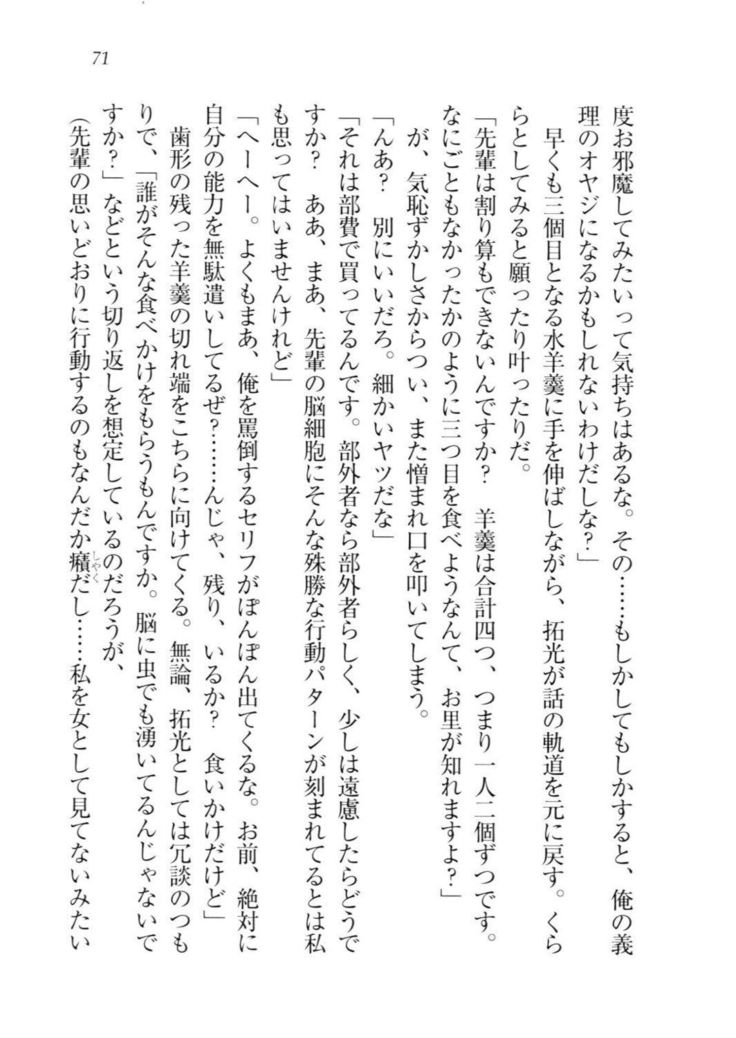 71
度お邪魔してみたいって気持ちはあるな。その……もしかしてもしかすると、俺の義
理のオヤジになるかもしれないわけだしな？」
　早くも三個目となる水羊羹に手を伸ばしながら、拓光が話の軌道を元に戻す。くら
らとしてみると願ったり叶ったりだ。
「先輩は割り算もできないんですか？　羊羹は合計四つ、つまり一人二個ずつです。
なにごともなかったかのように三つ目を食べようなんて、お里が知れますよ？」
　が、気恥ずかしさからつい、また憎まれ口を叩いてしまう。
「んあ？　別にいいだろ。細かいヤツだな」
「それは部費で買ってるんです。部外者なら部外者らしく、少しは遠慮したらどうで
すか？　ああ、まあ、先輩の脳細胞にそんな殊勝な行動パターンが刻まれてるとは私
も思ってはいませんけれど」
「へーへー。よくもまあ、俺を罵倒するセリフがぽんぽん出てくるな。お前、絶対に
自分の能力を無駄遣いしてるぜ？……んじゃ、残り、いるか？　食いかけだけど」
　歯形の残った羊羹の切れ端をこちらに向けてくる。無論、拓光としては冗談のつも
りで、「誰がそんな食べかけをもらうもんですか。脳に虫でも湧いてるんじゃないで
すか？」などという切り返しを想定しているのだろうが、
（先輩の思いどおりに行動するのもなんだか癪だし……私を女として見てないみたい
しゃく